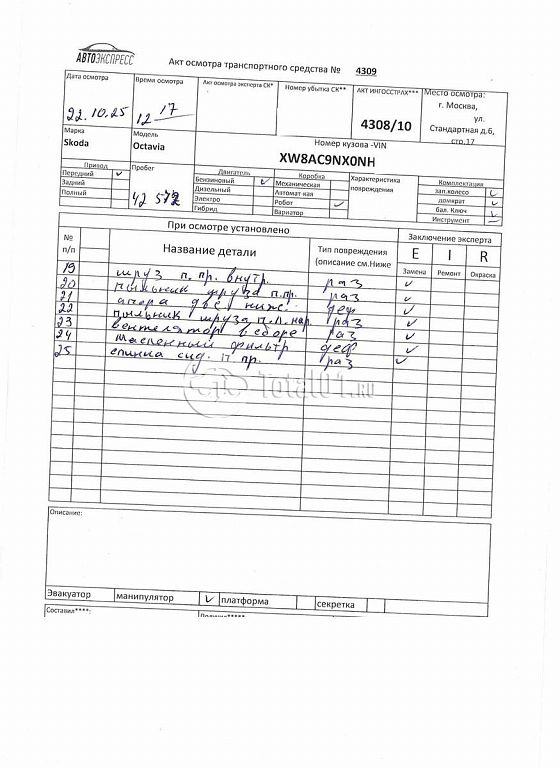 АВТОЭКСПРЕСС
Акт осмотра транспортного средства № 4309
Дата осмотра
22.10.25
Время осмотра
12 17
Акт осмотра эксперта СК*
Номер убытка СК**
АКТ ИНГОССТРАХ***
4308/10
Место осмотра:
г. Москва,
ул.
Стандартная д.6,
стр.17
Марка
Skoda
Модель
Octavia
Номер кузова -VIN
XW8AC9NX0NH
Привод
Передний ✓
Задний
Полный
Пробег
42 572
Двигатель
Бензиновый ✓
Дизельный
Электро
Гибрид
Коробка
Механическая
Автомат кая
Робот ✓
Вариатор
Характеристика
повреждения
Комплектация
зап.колесо ✓
домкрат ✓
бал. Ключ ✓
Инструмент –
При осмотре установлено
Заключение эксперта
№
п/п
Название детали
Тип повреждения
(описание см.Ниже
E I R
Замена Ремонт Окраска
19 шруз п.пр. внутр. раз ✓
20 пыльник шруза п.пр. раз ✓
21 опора двс нижн. деф ✓
22 пыльник шруза п.п. нар. раз ✓
23 вентелятор в сборе раз ✓
24 масленный фильтр деф ✓
25 спинка сид. п пр. раз ✓
Total01.ru
Описание:
Эвакуатор манипулятор ✓ платформа секретка
Составил****: